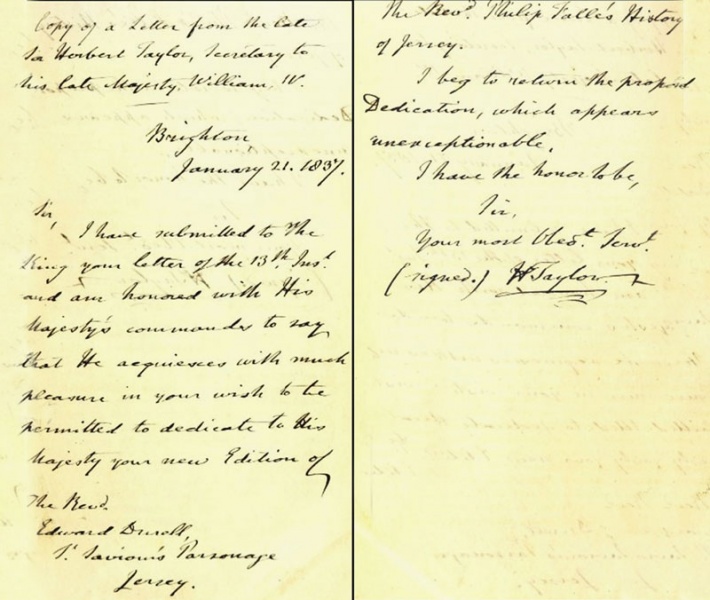 Copy of a Letter from the late
Sir Herbert Taylor, Secretary to
his late Majesty, William, IV.
Brighton
January 21. 1837.
Sir,
I have submitted to The
King your letter of the 13th. Inst.
and am honored with His
Majesty's commands to say
that He acquiesces with much
pleasure in your wish to be
permitted to dedicate to His
Majesty your new Edition of
The Revd.
Edward Durell,
St Saviour's Parsonage
Jersey.
The Revd. Philip Falle's History
of Jersey.
I beg to return the proposed
Dedication, which appears
unexceptionable.
I have the honor to be,
Sir,
Your most Obedt. Servt.
(signed.) H Taylor.